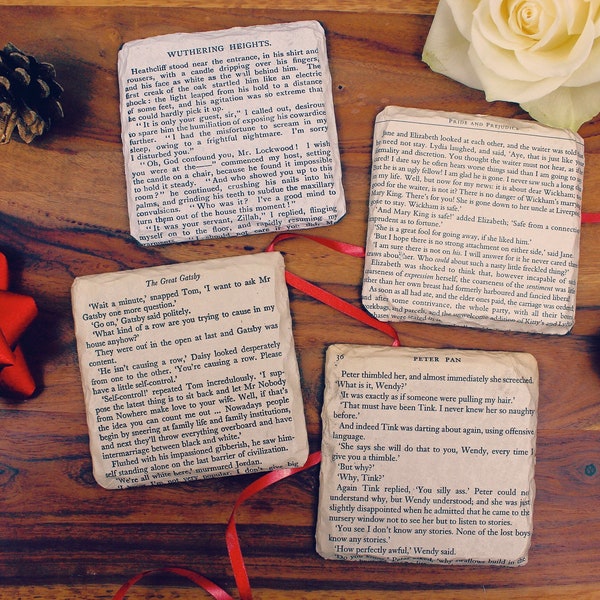 WUTHERING HEIGHTS.
Heathcliff stood near the entrance, in his shirt and
trousers, with a candle dripping over his fingers,
and his face as white as the wall behind him. The
first creak of the oak startled him like an electric
shock: the light leaped from his hold to a distance
of some feet, and his agitation was so extreme that
he could hardly pick it up.
“It is only your guest, sir,” I called out, desirous
to spare him the humiliation of exposing his cowardice
further. “I had the misfortune to scream in my
sleep, owing to a frightful nightmare. I’m sorry
I disturbed you.”
“Oh, God confound you, Mr. Lockwood! I wish
you were at the——” commenced my host, setting
the candle on a chair, because he found it impossible
to hold it steady. “And who showed you up to this
room?” he continued, crushing his nails into his
palms, and grinding his teeth to subdue the maxillary
convulsions. “Who was it? I’ve a good mind to
turn them out of the house this moment!”
“It was your servant, Zillah,” I replied, flinging
myself on to the floor, and rapidly resuming my
PRIDE AND PREJUDICE
Jane and Elizabeth looked at each other, and the waiter was told
need not stay. Lydia laughed, and said, ‘Aye, that is just like your
formality and discretion. You thought the waiter must not hear, as
cared! I dare say he often hears worse things said than I am going to
But he is an ugly fellow! I am glad he is gone. I never saw such a long
in my life. Well, but now for my news: it is about dear Wickham;
good for the waiter, is not it? There is no danger of Wickham's marrying
Mary King. There's for you! She is gone down to her uncle at Liverpool
gone to stay. Wickham is safe.'
'And Mary King is safe!' added Elizabeth; 'Safe from a connection
imprudent as to fortune.'
'She is a great fool for going away, if she liked him.'
'But I hope there is no strong attachment on either side,' said Jane.
'I am sure there is not on his. I will answer for it he never cared three
straws about her. Who could about such a nasty little freckled thing?'
Elizabeth was shocked to think that, however incapable of
coarseness of expression herself, the coarseness of the sentiment was little
other than her own breast had formerly harboured and fancied liberal!
As soon as all had ate, and the elder ones paid, the carriage was ordered
after some contrivance, the whole party, with all their boxes,
workbags, and parcels, and the unwelcome addition of Kitty's and Lydia's
were seated
The Great Gatsby
‘Wait a minute,’ snapped Tom, ‘I want to ask Mr
Gatsby one more question.’
‘Go on,’ Gatsby said politely.
‘What kind of a row are you trying to cause in my
house anyhow?’
They were out in the open at last and Gatsby was
content.
‘He isn’t causing a row,’ Daisy looked desperately
from one to the other. ‘You’re causing a row. Please
have a little self-control.’
‘Self-control!’ repeated Tom incredulously. ‘I sup-
pose the latest thing is to sit back and let Mr Nobody
from Nowhere make love to your wife. Well, if that’s
the idea you can count me out ... Nowadays people
begin by sneering at family life and family institutions,
and next they’ll throw everything overboard and have
intermarriage between black and white.’
Flushed with his impassioned gibberish, he saw him-
self standing alone on the last barrier of civilization.
‘We’re all white here,’ murmured Jordan.
‘I know I’m not very popular. I don’t give big
PETER PAN
Peter thimbled her, and almost immediately she screeched.
‘What is it, Wendy?’
‘It was exactly as if someone were pulling my hair.’
‘That must have been Tink. I never knew her so naughty
before.’
And indeed Tink was darting about again, using offensive
language.
‘She says she will do that to you, Wendy, every time I
give you a thimble.’
‘But why?’
‘Why, Tink?’
Again Tink replied, ‘You silly ass.’ Peter could not
understand why, but Wendy understood; and she was just
slightly disappointed when he admitted that he came to the
nursery window not to see her but to listen to stories.
‘You see I don’t know any stories. None of the lost boys
know any stories.’
‘How perfectly awful,’ Wendy said.
‘Do you know,’ Peter asked, ‘why swallows build in the